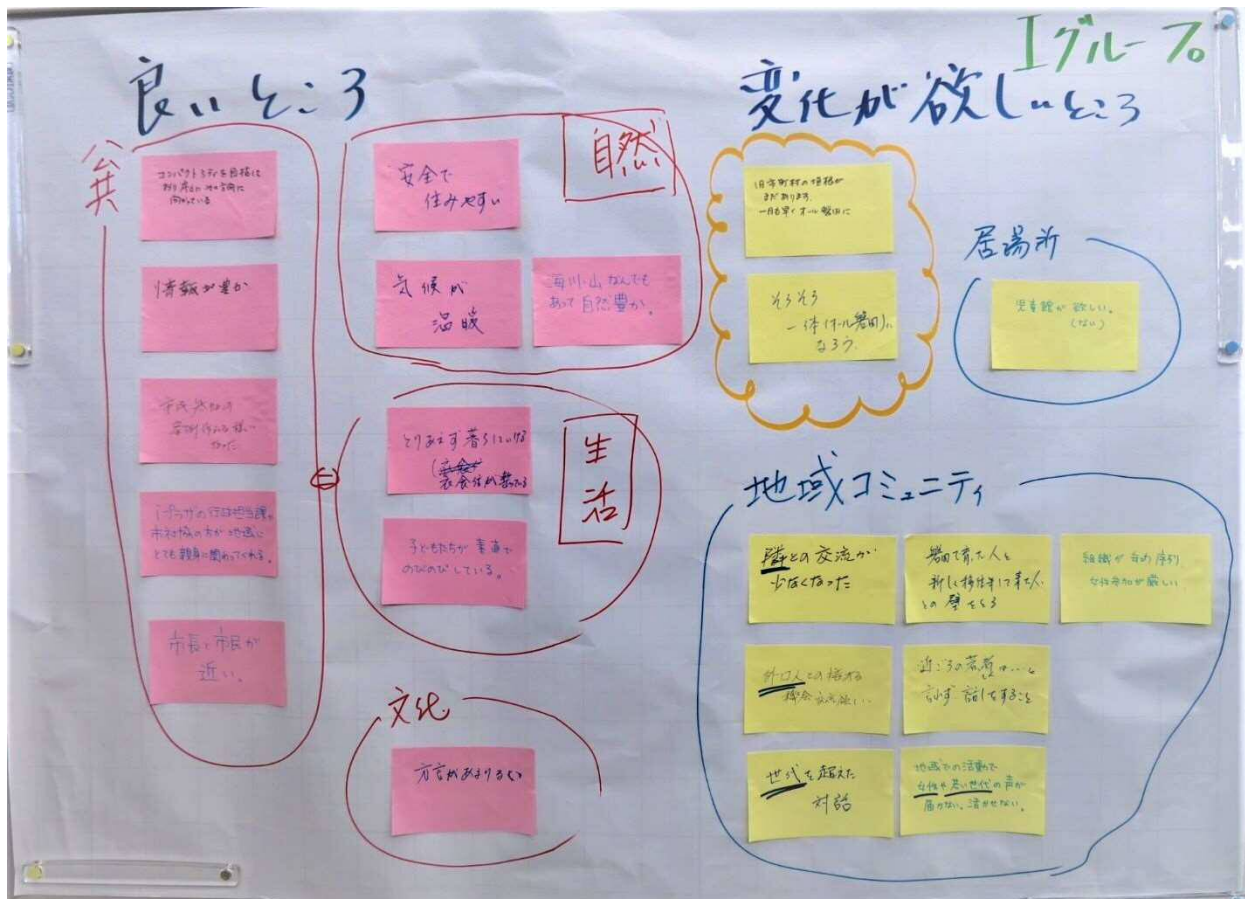 Iグループ
良いところ
公共
コンパクトシティを目指して
向かっている
情報が豊か
市民参加の
なった
iプラザの行政担当課、
市社協の方が地域に
とても親身に関わってくれる。
市長と市民が
近い。
自然
安全で
住みやすい
気候が
温暖
海川山なんでも
あって自然豊か。
生活
とりあえず暮らしていける
衣食住が整っている
子どもたちが素直で
のびのびしている。
文化
方言があまりない
変化が欲しいところ
旧市町村の垣根が
まだあります。
一日も早くオール磐田に
そろそろ
一体(オール磐田)に
なろう。
居場所
児童館が欲しい。
(ない)
地域コミュニティ
隣との交流が
少なくなった
磐田で育った人と
新しく移住して来た人
との壁をとる
組織が年功序列
女性参加が厳しい
外国人との接する
機会 欲しい
近ごろの若者は…と
言わず話しをすること
世代を超えた
対話
地域での活動で
女性や若い世代の声が
届かない、活かせない。